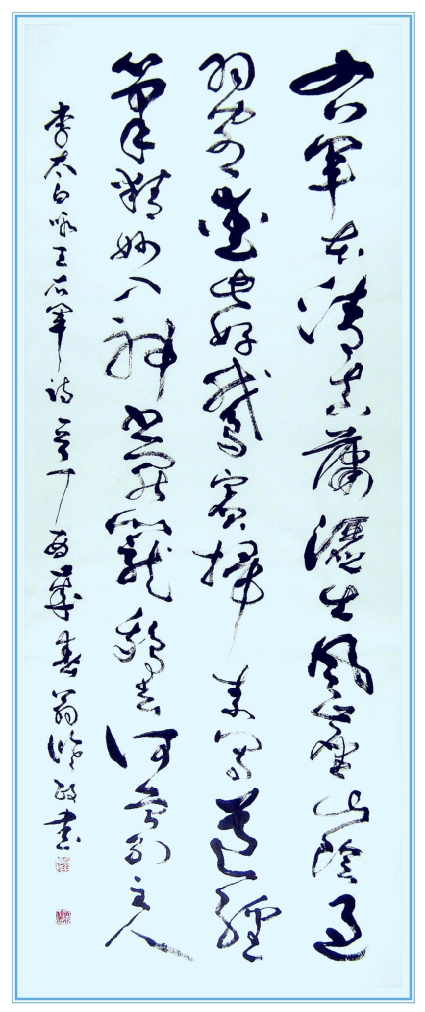 右軍本清真蕭灑出風塵山陰過
羽客愛此好鵝賓掃素寫道經
筆精妙入神書罷籠鵝去何曾別主人
李太白咏王右軍詩一首丁酉歲春翁政書